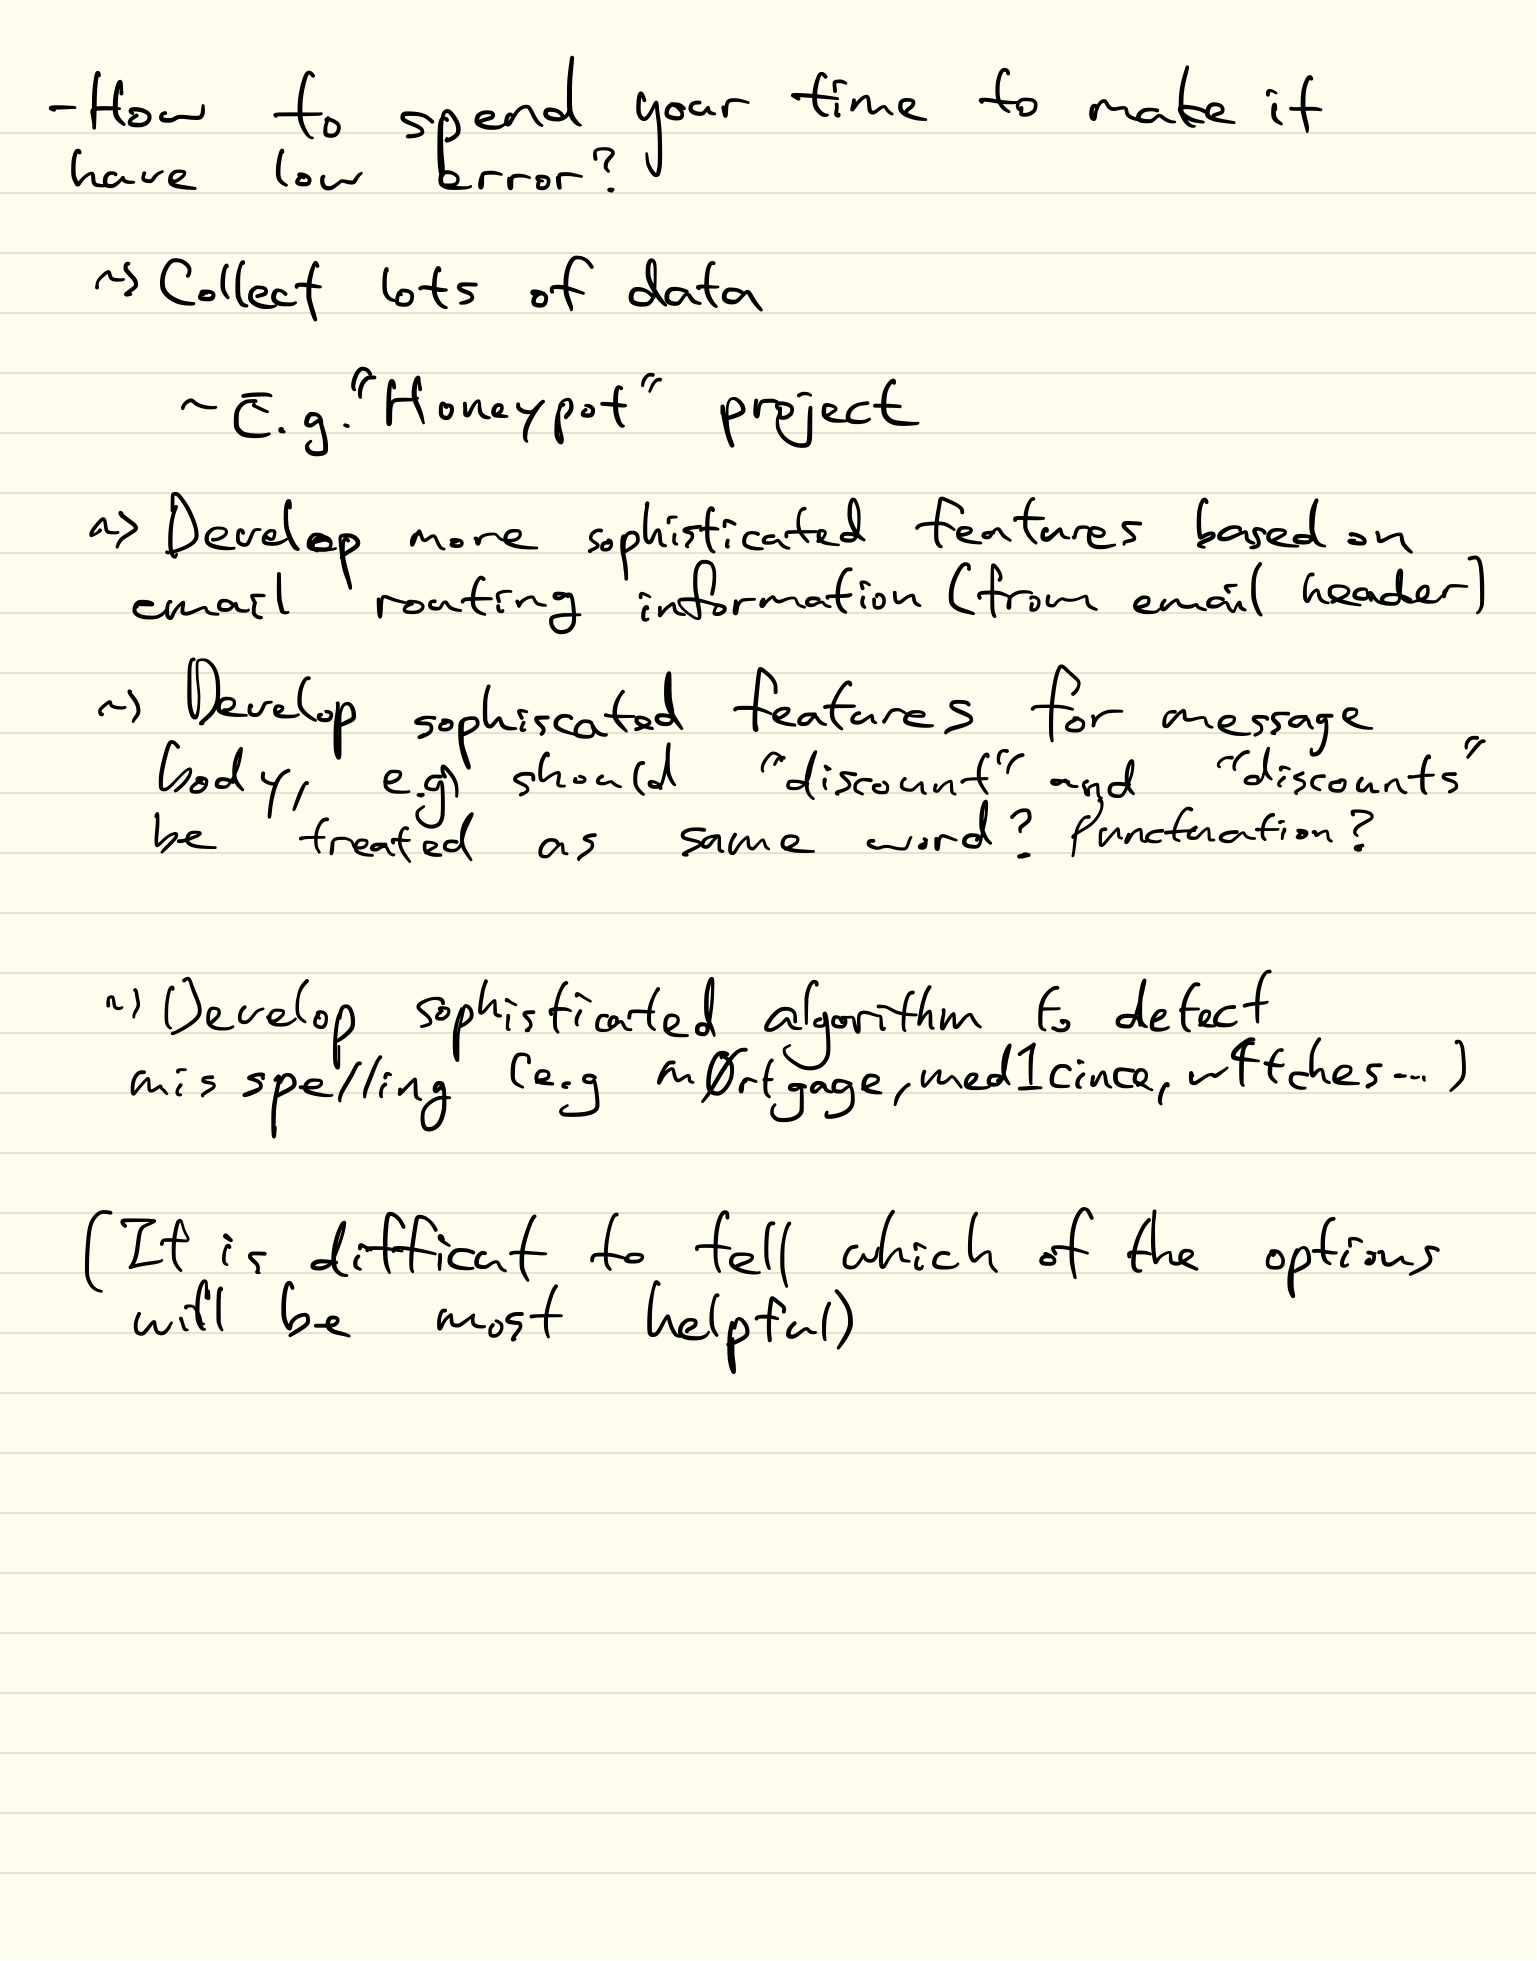 -How to spend your time to make it
have low error?
~> Collect lots of data
~ E.g. "Honeypot" project
~> Develop more sophisticated features based on
email routing information (from email header)
~> Develop sophiscated features for message
body, e.g) should "discount" and "discounts"
be treated as same word? Punctuation?
~> Develop sophisticated algorithm to detect
misspelling (e.g mØrtgage, med1cince, w4tches...)
(It is difficut to tell which of the options
will be most helpful)